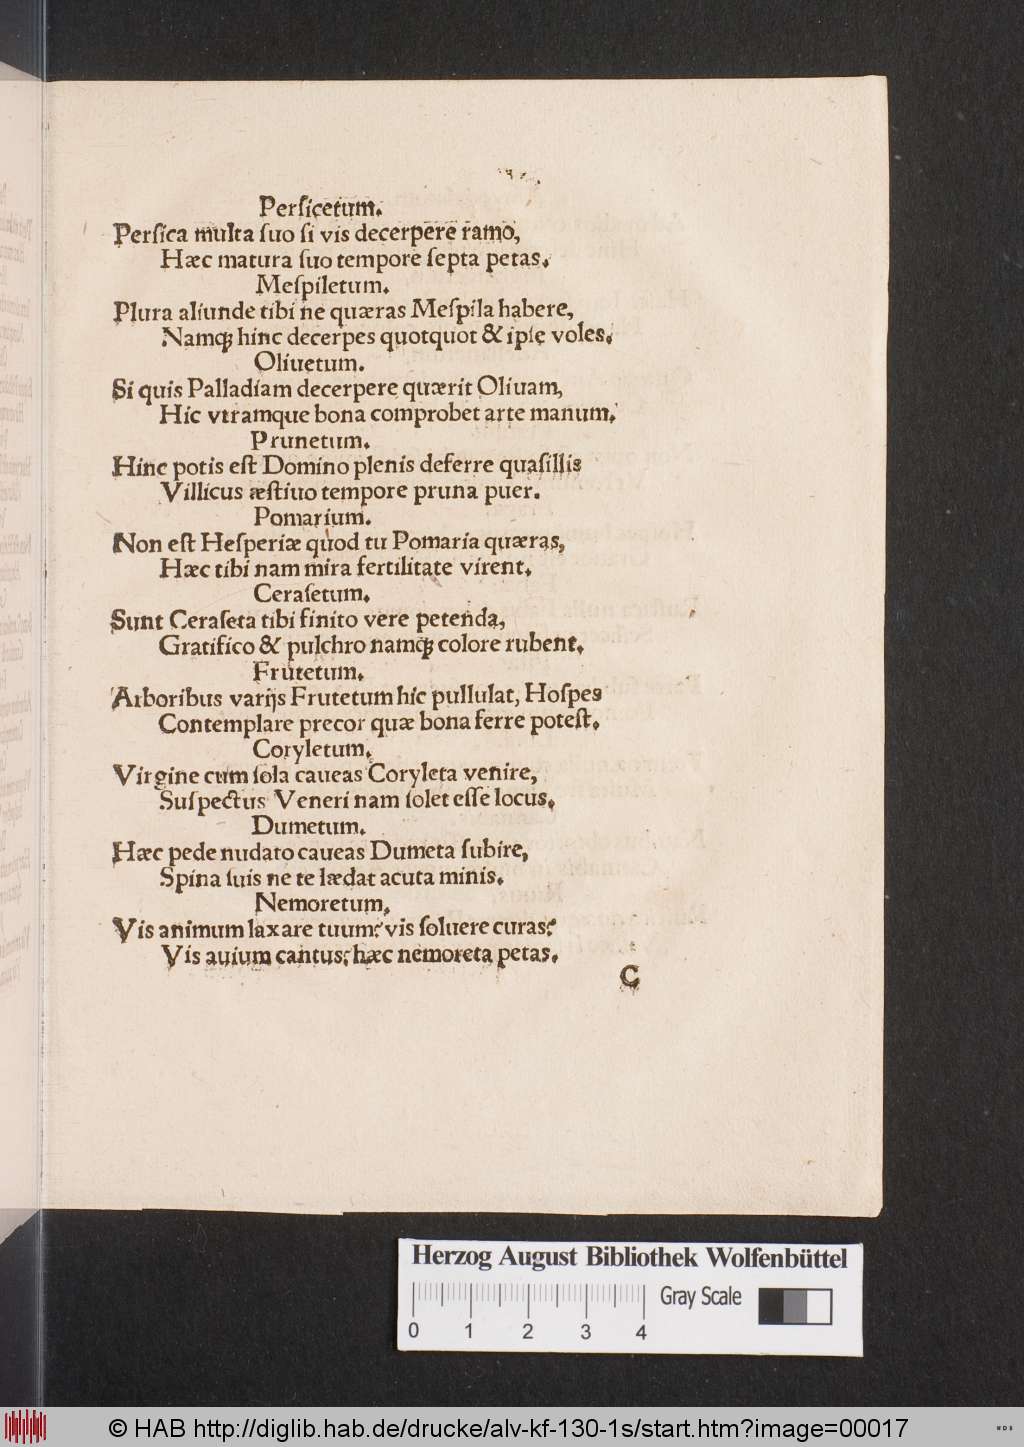 Perſicetum.
Perſica multa ſuo ſi vis decerpere ramo,
Hæc matura ſuo tempore ſepta petas.
Meſpiletum.
Plura aliunde tibi ne quæras Meſpila habere,
Namq; hinc decerpes quotquot & ipſe voles.
Oliuetum.
Si quis Palladiam decerpere quærit Oliuam,
Hic vtramque bona comprobet arte manum.
Prunetum.
Hinc potis eſt Domino plenis deferre quaſillis
Villicus æſtiuo tempore pruna puer.
Pomarium.
Non eſt Heſperiæ quod tu Pomaria quæras,
Hæc tibi nam mira fertilitate virent.
Ceraſetum.
Sunt Ceraſeta tibi finito vere petenda,
Gratifico & pulchro namq; colore rubent.
Frutetum.
Arboribus varijs Frutetum hic pullulat, Hoſpes
Contemplare precor quæ bona ferre poteſt.
Coryletum.
Virgine cum ſola caueas Coryleta venire,
Suſpectus Veneri nam ſolet eſſe locus.
Dumetum.
Hæc pede nudato caueas Dumeta ſubire,
Spina ſuis ne te lædat acuta minis.
Nemoretum.
Vis animum laxare tuum? vis ſoluere curas?
Vis auium cantus? hæc nemoreta petas.
C
Herzog August Bibliothek Wolfenbüttel
Gray Scale
0 1 2 3 4
© HAB http://diglib.hab.de/drucke/alv-kf-130-1s/start.htm?image=00017